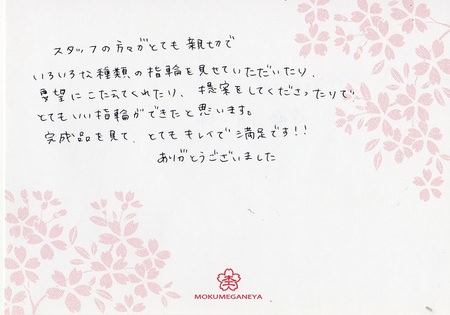 スタッフの方々がとても親切で
いろいろな種類の指輪を見せていただいたり、
要望にこたえてくれたり、提案をしてくださったりで
とてもいい指輪ができたと思います。
完成品を見て、とてもキレイで満足です!!
ありがとうございました
MOKUMEGANEYA